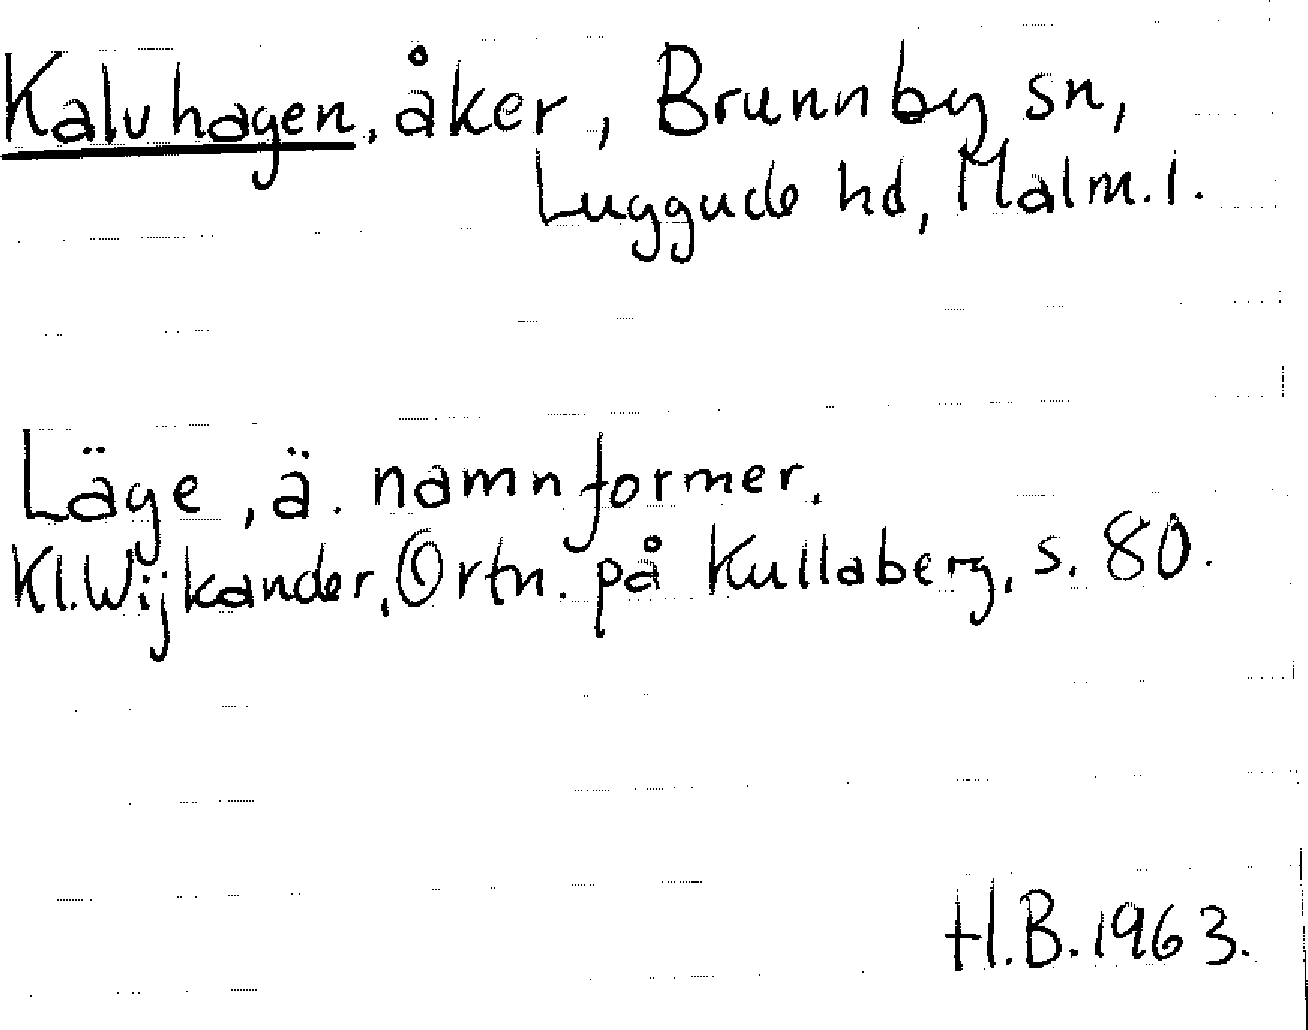 Kalvhagen, åker, Brunnby sn,
Luggude hd, Malm. l.
Läge, ä. namnformer.
Kl. Wijkander, Ortn. på Kullaberg, s. 80.
H.B. 1963.